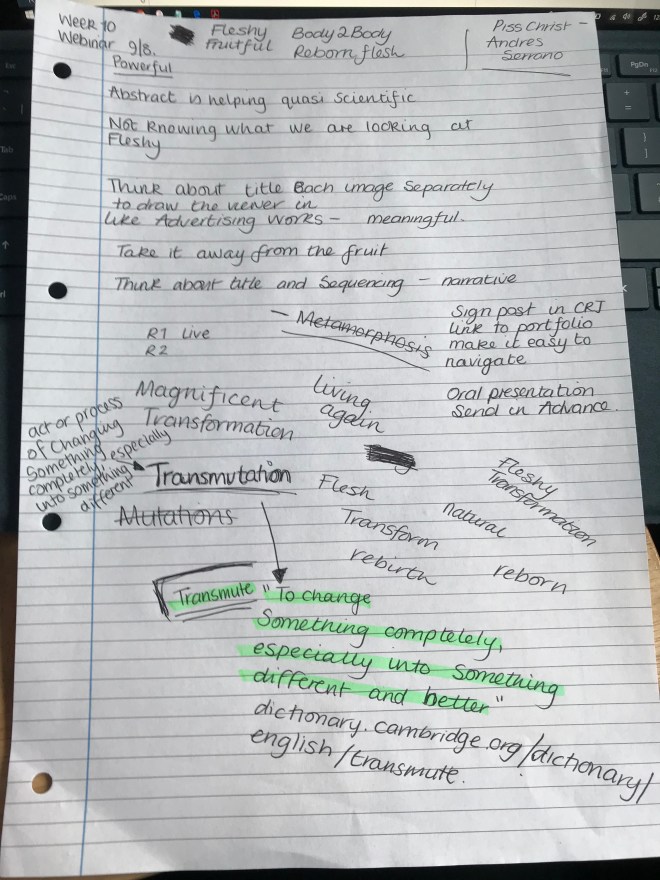 Week 10
Webinar 9/8.
Powerful
Fleshy
fruitful
Body2Body
Reborn flesh
Piss Christ -
Andres
Serrano
Abstract is helping quasi scientific
Not knowing what we are looking at
Fleshy
Think about title Each image separately
to draw the viewer in
like Advertising works - meaningful.
Take it away from the fruit
Think about title and sequencing - narrative
R1 Live
R2
- Metamorphosis
Sign post in CRJ
link to portfolio
make it easy to
navigate
Oral presentation
Send in Advance.
Magnificent
Transformation
living
again
act or process
of changing
something
completely especially
into something
different
Transmutation
Mutations
Flesh
Transform
rebirth
natural
Fleshy
Transformation
reborn
Transmute "To change
Something completely,
especially into something
different and better"
dictionary.cambridge.org/dictionary/
english/transmute.
PgDn
+
=